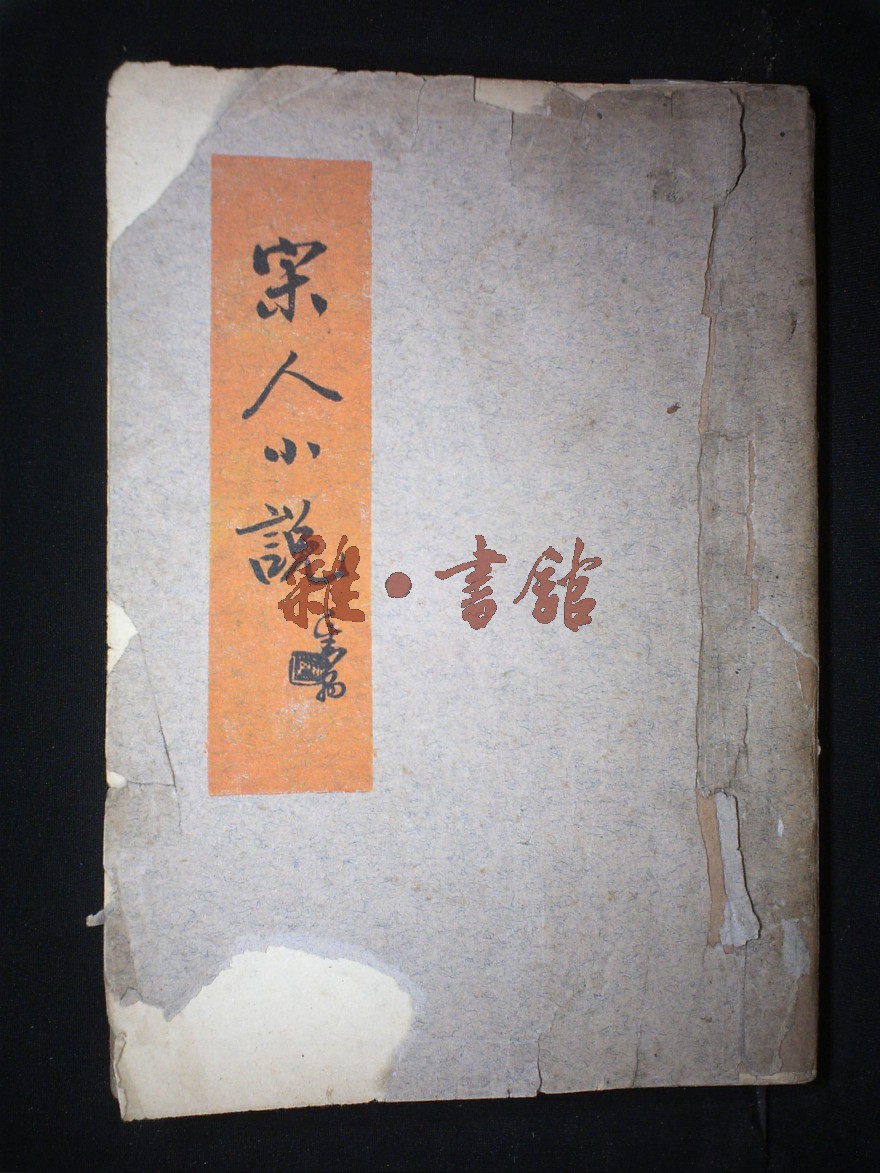 宋人小說
雜·書館